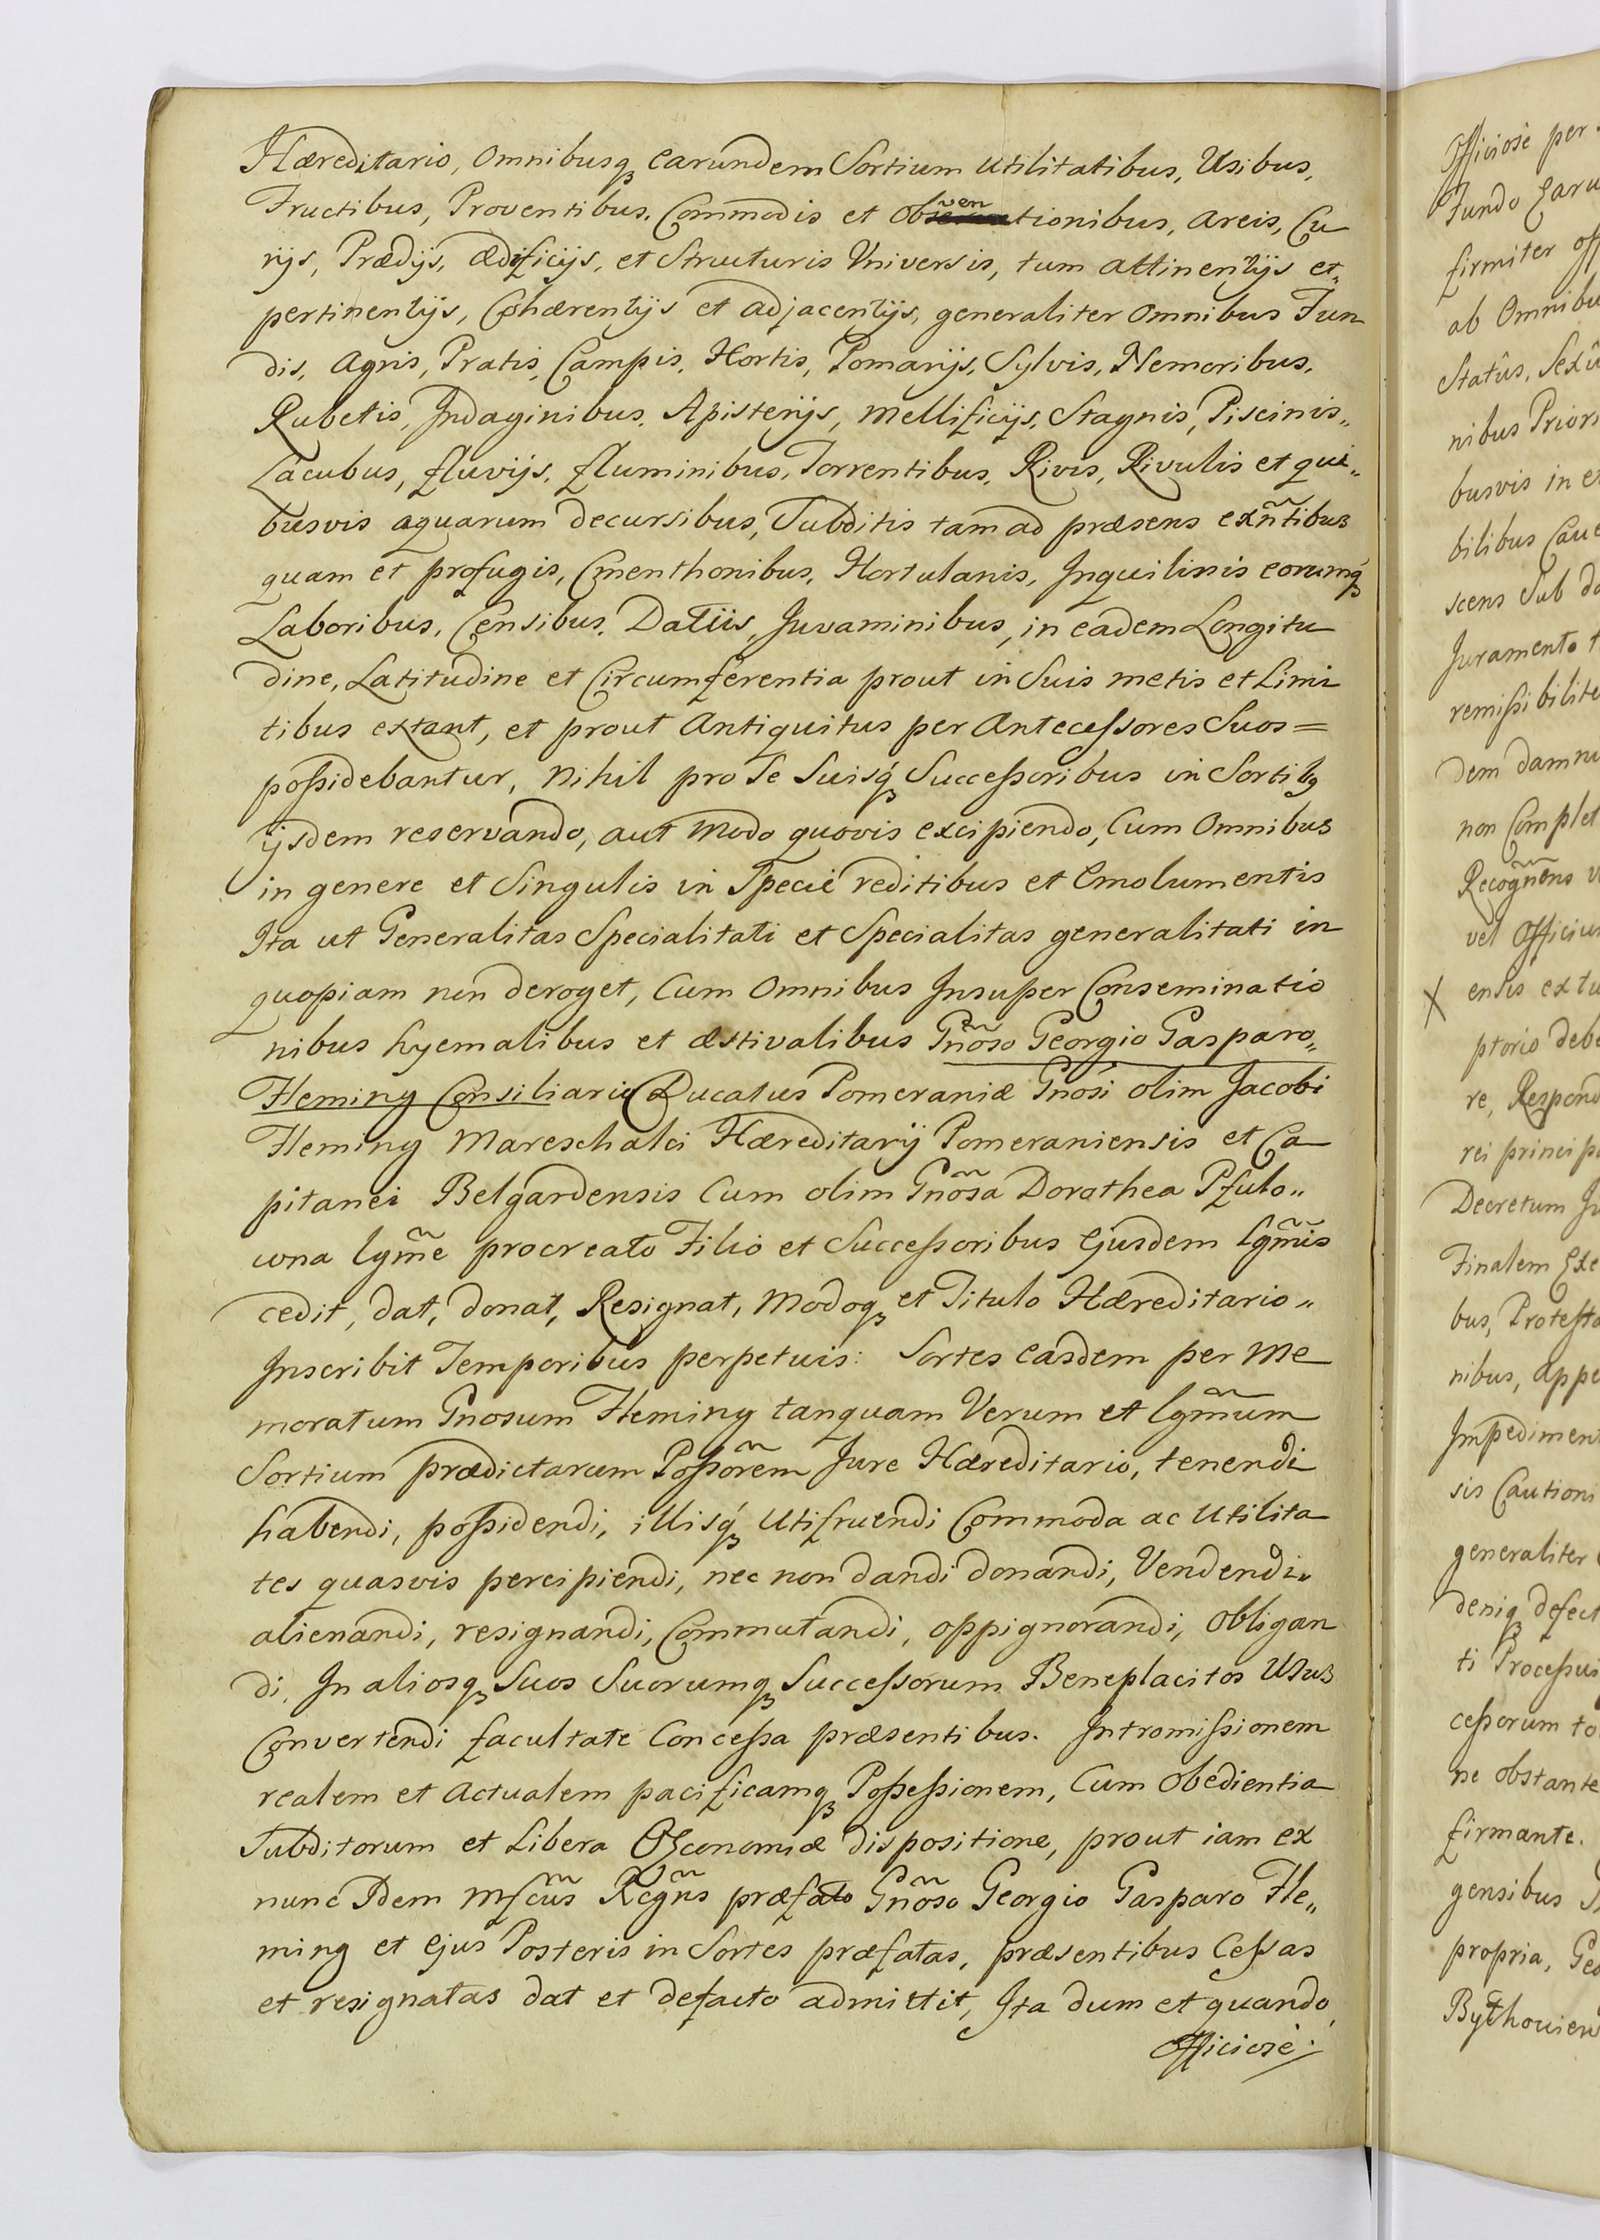 Hæreditario, Omnibusq₃ earundem Sortium utilitatibus, Usibus,
Fructibus, Proventibus, Commodis et obventionibus, areis, Cu
rijs, Prædijs, ædificijs, et Structuris Universis, tum attinentijs et
pertinentijs, Cohærentijs et adjacentijs, generaliter omnibus Fun
dis, agris, Pratis, Campis, Hortis, Pomarijs, Sylvis, Nemoribus,
Rubetis, Indaginibus, Apisterijs, mellificijs, Stagnis, Piscinis„
Lacubus, fluvijs, fluminibus, Torrentibus, Rivis, Rivulis et qui„
busvis aquarum decursibus, Subditis tam ad præsens exñtibus
quam et profugis, Cmenthonibus, Hortulanis, Inquilinis eorumq́₃
Laboribus, Censibus, Datiis, Juvaminibus, in eadem Longitu
dine, Latitudine et Circumferentia prout in Suis metis et Limi
tibus extant, et prout Antiquitus per Antecessores Suos =
possidebantur, Nihil pro Se Suisq́₃ Successoribus in Sortibq
ijsdem reservando, aut modo quovis excipiendo, Cum Omnibus
in genere et Singulis in Specie reditibus et Emolumentis
Ita ut Generalitas Specialitati et Specialitas generalitati in
quopiam non deroget, Cum Omnibus Insuper Conseminatio
nibus hyemalibus et æstivalibus Gñoso Georgio Gasparo„
Fleming Consiliario Ducatus Pomeraniæ Gnosi olim Jacobi
Fleming Mareschalci Hæreditarij Pomeraniensis et Ca
pitanei Belgardensis Cum olim Gnõsa Dorathea Pfulo„
wna lgm̃e procreato Filio et Successoribus Ejusdem lgm̃is
cedit, dat, donat, Resignat, Modoq₃ et Titulo Hæreditario„
Inscribit Temporibus perpetuis: Sortes easdem per Me
moratum Gnosum Fleming tanquam Verum et lgm̃um
Sortium prædictarum Possõrem Jure Hæreditario, tenendi
habendi, possidendi, illisq́₃ Utifruendi Commoda ac Utilita
tes quasvis percipiendi, nec non dandi donandi, Vendendi„
alienandi, resignandi, Commutandi, oppignorandi, Obligan
di, In aliosq₃ Suos Suorumq₃ Successorum Beneplacitos Usus
Convertendi facultate Concessa præsentibus. Intromissionem
realem et Actualem pacificamq₃ Possessionem, Cum Obedientia
Subditorum et Libera Oeconomiæ dispositione, prout iam ex
nunc Idem Mfcũs Rcgñs præfato Gñoso Georgio Gasparo Fle„
ming et Ejus Posteris in Sortes præfatas, præsentibus Cessas
et resignatas dat et defacto admittit, Ita dum et quando
officiosè
Officiosè per
Fundo Earu
firmiter off
ab Omnibu
Statûs, Sexû
nibus Priori
busvis in e
bilibus Cave
scens Sub
Juramento t
remissibilite
dem damni
non Complet
Recogñens
vel Officiu
X ensis extu
ptorio debe
re, Respond
rei princip
Decretum
Finalem Exe
bus, Protesta
nibus, appe
Impediment
sis Cautioni
generaliter
deniq₃ defect
ti Processu
cessorum to
ne obstante
firmante.
gensibus
propria, Geo
Bythovien